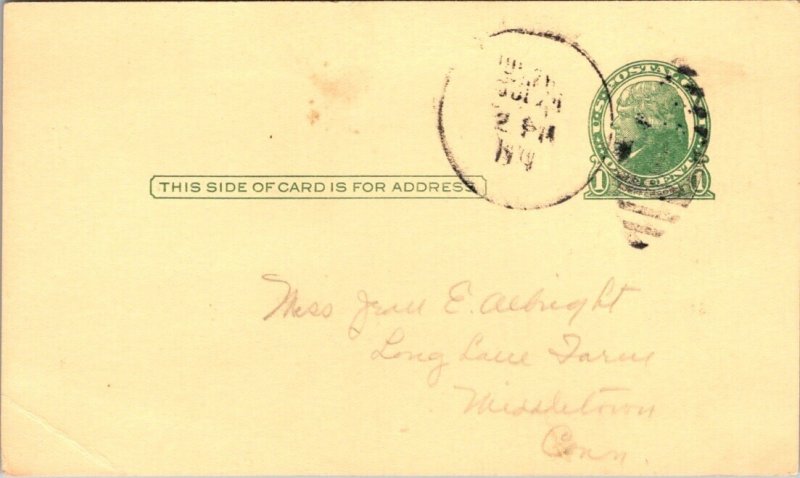 U.S. POSTAGE
JUL 24
2 PM
1 ONE CENT 1
THIS SIDE OF CARD IS FOR ADDRESS
Miss Jean E. Albright
Long Lane Farm
Middletown
Conn.